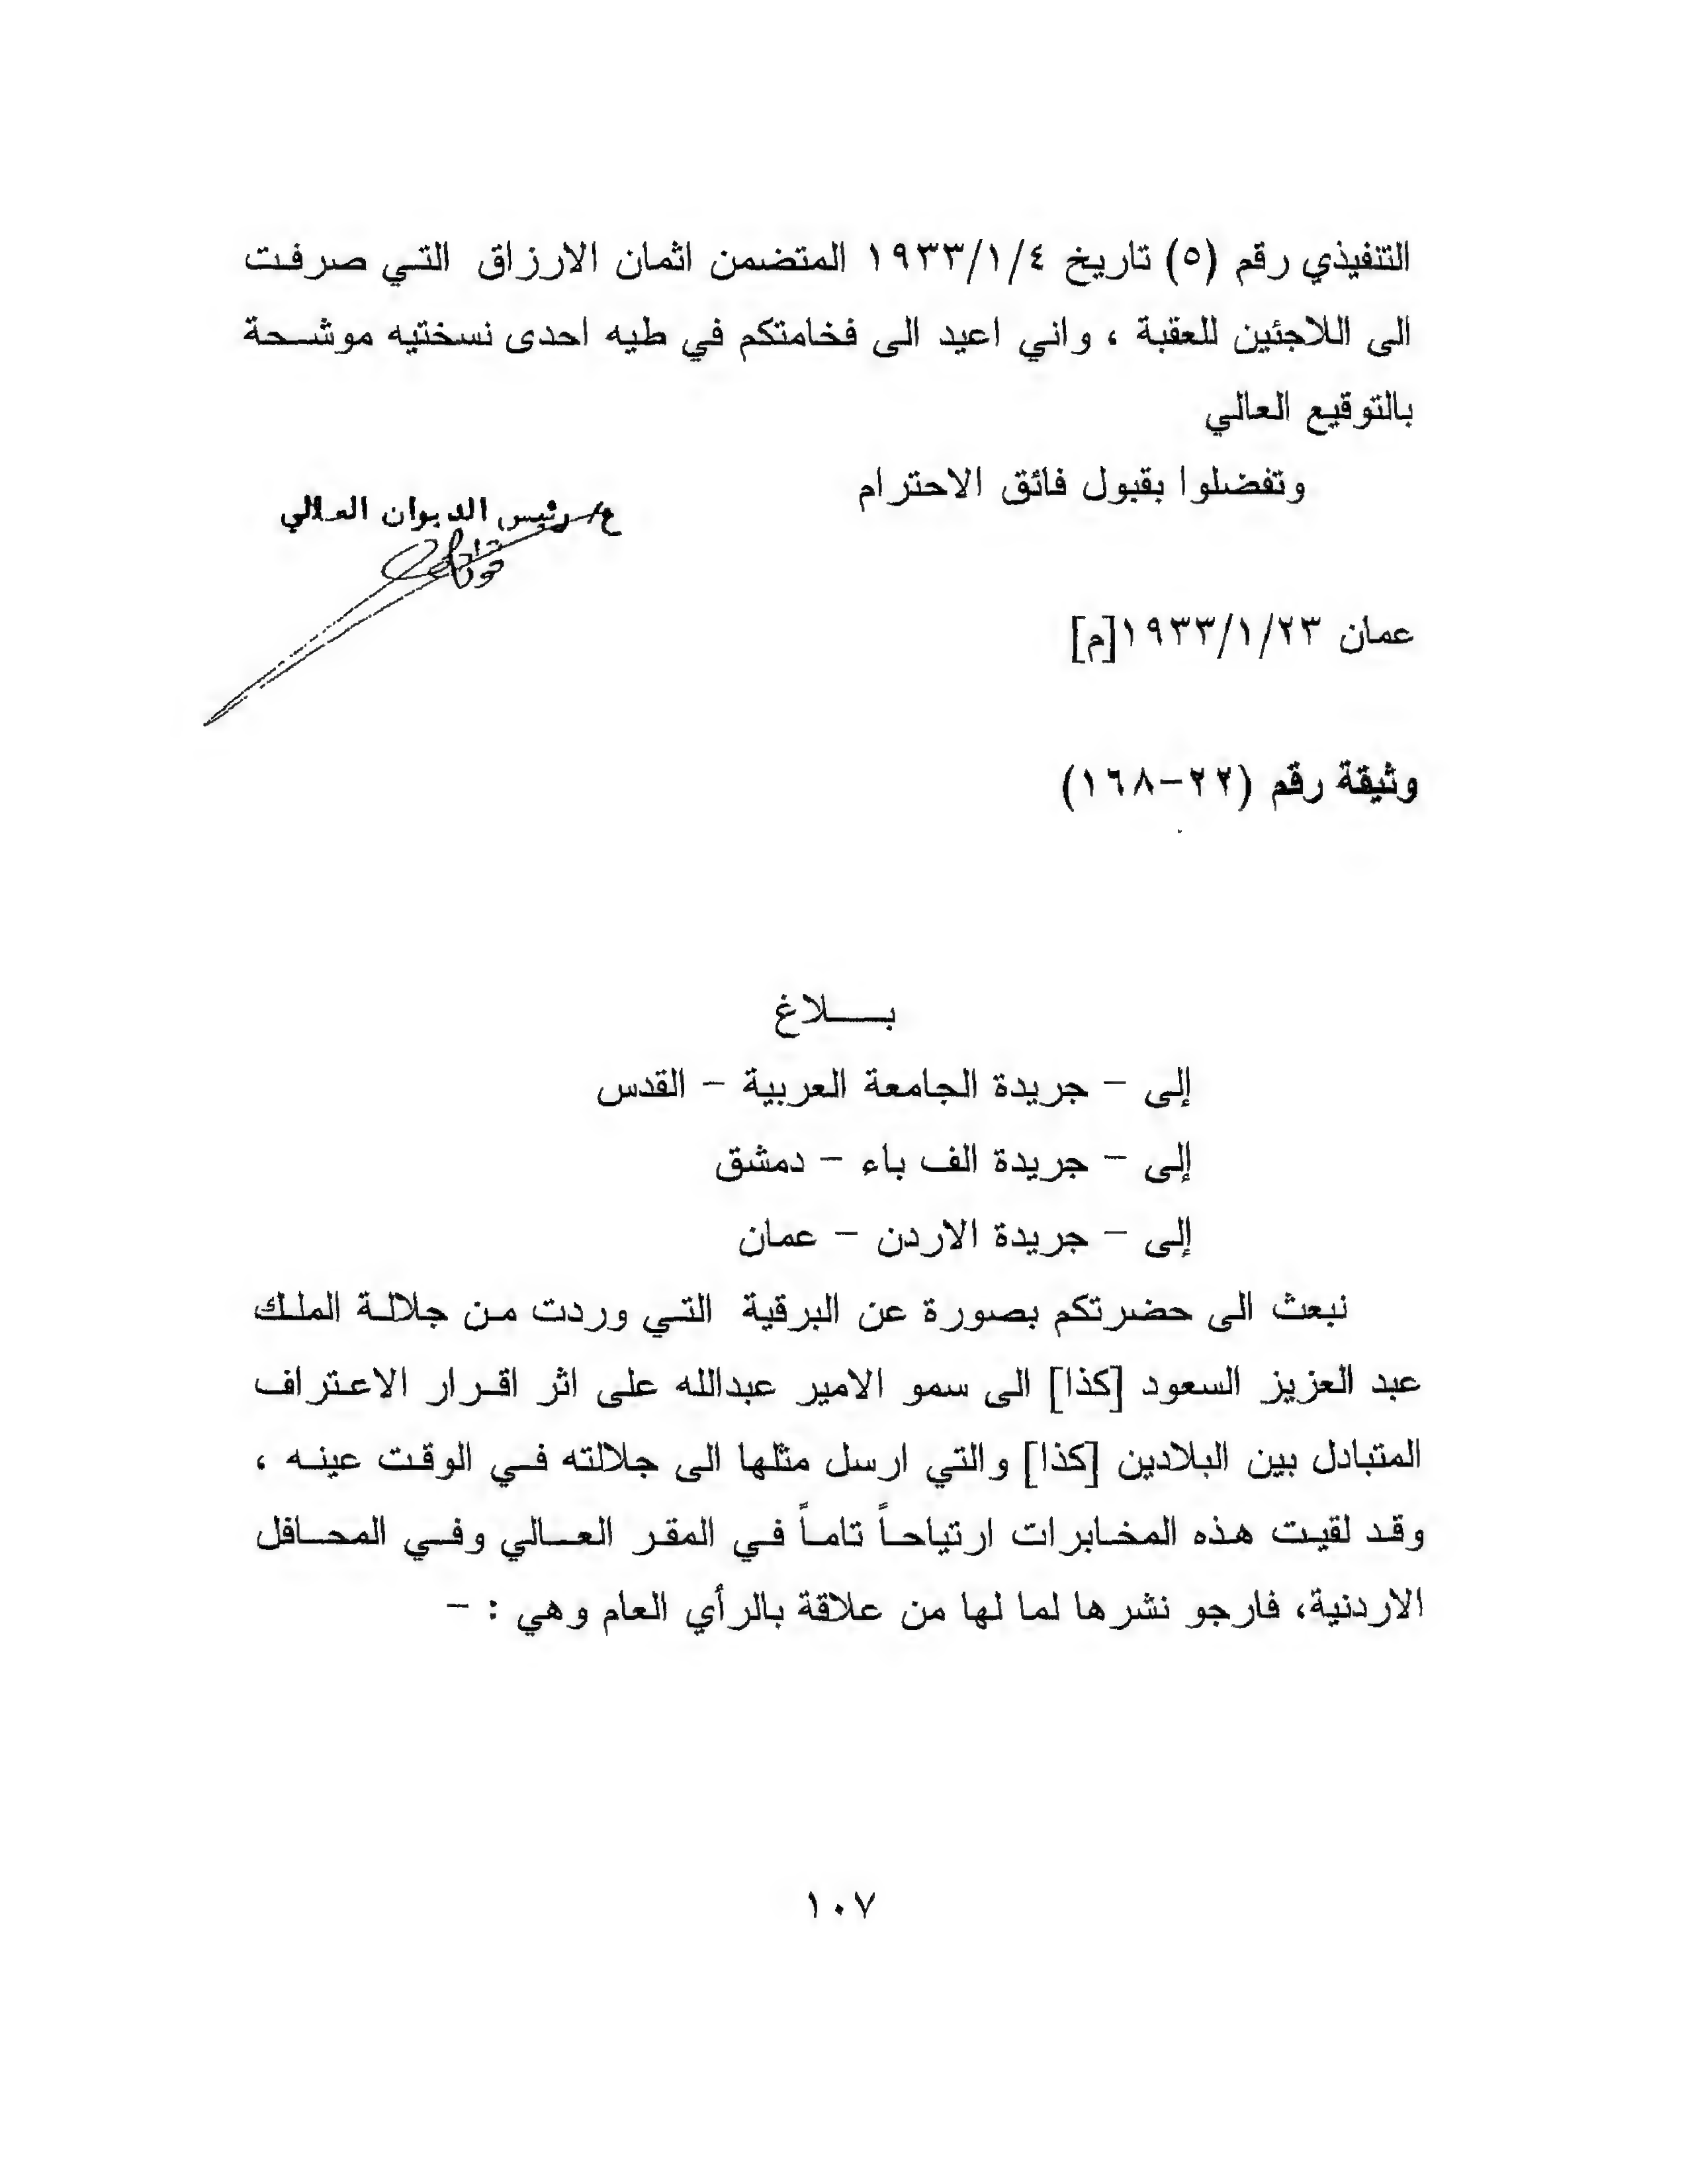 التنفيذي رقم (٥) تاريخ ١٩٣٣/١/٤ المتضمن اثمان الارزاق التي صرفت
الى اللاجئين للعقبة ، واني اعيد الى فخامتكم في طيه احدى نسختيه موشحة
بالتوقيع العالي
وتفضلوا بقبول فائق الاحترام
ع/ رئيس الديوان العالي
عمان ١٩٣٣/١/٢٣[م]
وثيقة رقم (٢٢-١٦٨)
بلاغ
إلى - جريدة الجامعة العربية - القدس
إلى - جريدة الف باء - دمشق
إلى - جريدة الاردن - عمان
نبعث الى حضرتكم بصورة عن البرقية التي وردت من جلالة الملك
عبد العزيز السعود [كذا] الى سمو الامير عبدالله على اثر اقرار الاعتراف
المتبادل بين البلادين [كذا] والتي ارسل مثلها الى جلالته في الوقت عينه ،
وقد لقيت هذه المخابرات ارتياحاً تاماً في المقر العالي وفي المحافل
الاردنية، فارجو نشرها لما لها من علاقة بالرأي العام وهي : -
١٠٧